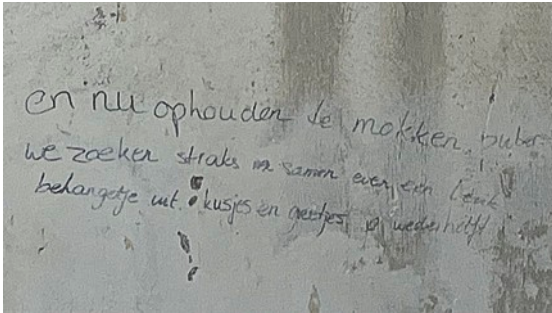 en nu ophouden te mokken,
we zoeken straks samen even een leuk
behangetje uit. kusjes en je wederhelft